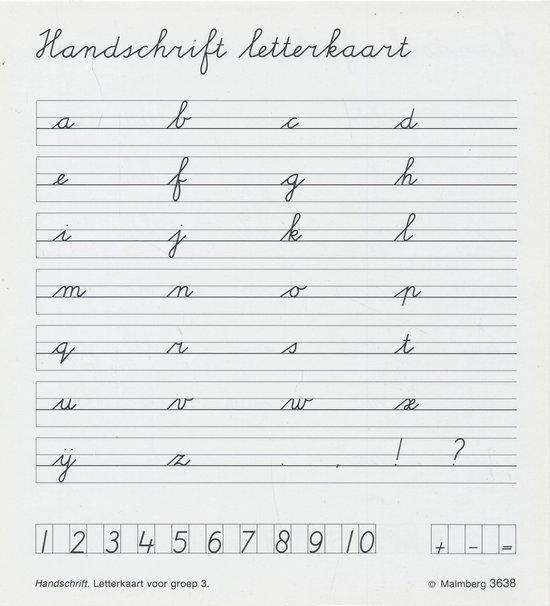 Handschrift letterkaart
a b c d
e f g h
i j k l
m n o p
q r s t
u v w x
ij z . , ! ?
1 2 3 4 5 6 7 8 9 10 + - =
Handschrift. Letterkaart voor groep 3. © Malmberg 3638